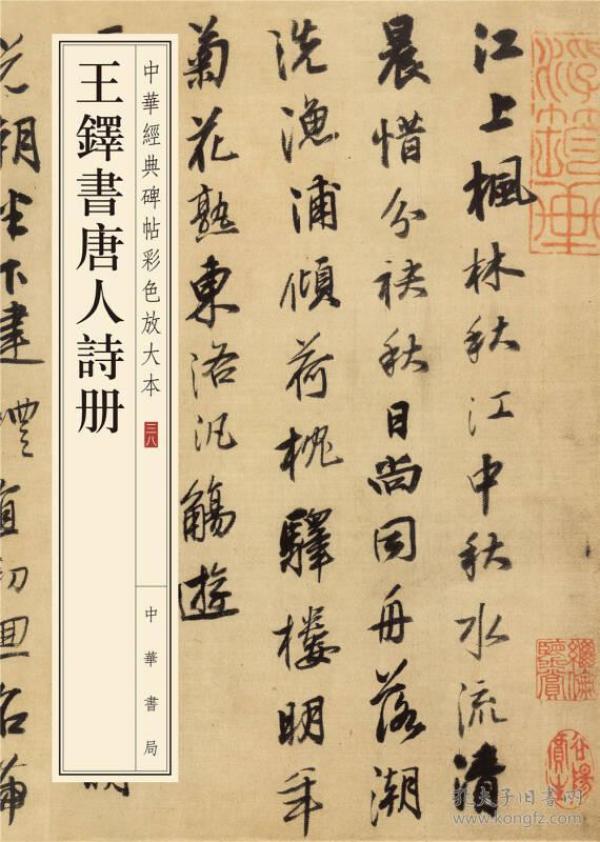 江上楓林秋江中秋水流清
晨惜分袂秋日尚同舟落潮
洗漁浦傾荷枕驛樓明年
菊花熟東洛汎觴遊
中華經典碑帖彩色放大本
三八
中華書局
王鐸書唐人詩册
朝坐下建禮直初迴名
孔夫子旧书网
www.kongfz.com